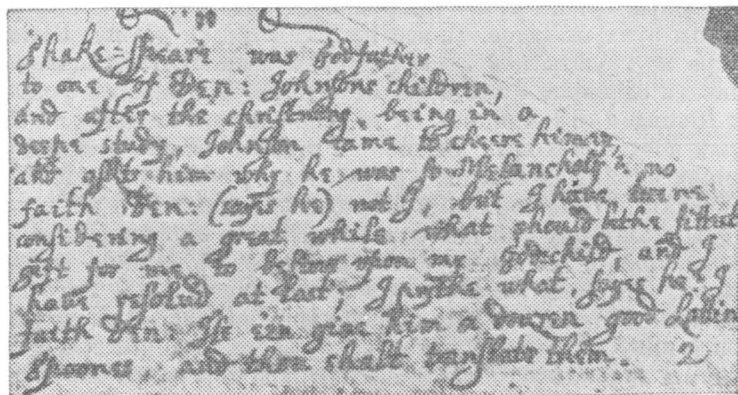 Shake-speare was Godfather
to one of Ben: Johnsons children,
and after the christning, being in a
deepe study, Johnson came to cheere him up,
and askt him why he was so Melancholy? no
faith Ben: (sayes he) not I, but I have beene
considering a great while what should be the fittest
gift for me to bestow upon my Godchild, and I
have resolud at last; I prythe what, sayes he? I
faith Ben: I'le e'en giue him a douzen good Lattin
spoones, and thou shalt translate them. 2